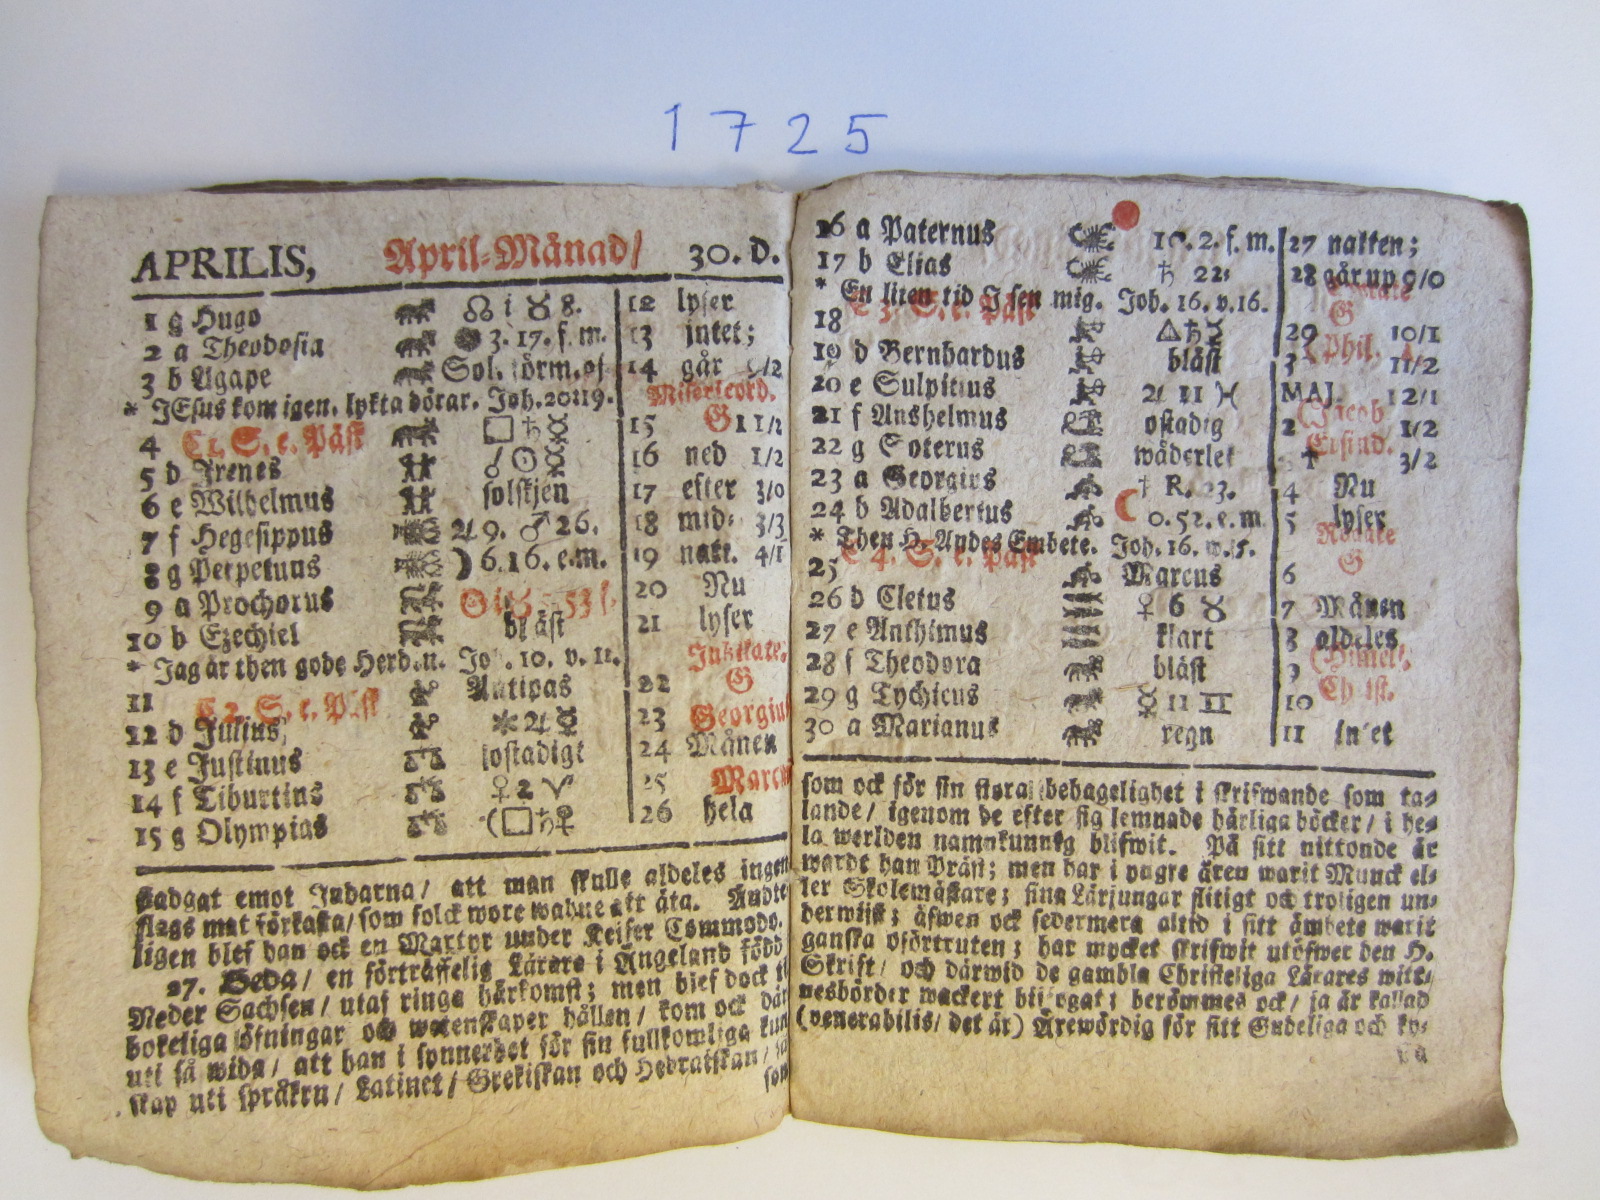 1725
APRILIS, April-Månad/ 30. D.
1 g Hugo ☊ i ♉ 8. 12 lyser
2 a Theodosia 3. 17. f. m. 13 intet;
3 b Agape Sol. förm. 14 går 0/2
* JEsus kom igen. lykta dörar. Joh. 20:19. Misericord.
4 C 1. S. e. Påsk □ ♄ ☿ 15 G 11/2
5 d Irenes ☌ ☉ ☿ 16 ned 1/2
6 e Wilhelmus solskjen 17 efter 3/0
7 f Hegesippus ♃ 9. ♂ 26. 18 mid- 3/3
8 g Perpetuus ☽ 6.16. e.m. 19 natt. 4/1
9 a Prochorus 20 Nu
10 b Ezechiel bläst 21 lyser
* Jag är then gode Herden. Joh. 10. v. 11. Jubilate.
11 C 2. S. e. Påsk Antipas 22 G
12 d Julius, ⚹ ♃ ☿ 23 Georgius
13 e Justinus lostadigt 24 Månen
14 f Tiburtius ♀ 2 ♈ 25 Marcus
15 g Olympias (□ ♄ ♀ 26 hela
stadgat emot Judarna/ att man skulle aldeles ingen
slags mat förkasta/ som folck wore wahne att äta. Ändte
ligen blef han ock en Martyr under Keiser Commodo.
27. Beda/ en förträffelig Lärare i Ängeland född
Neder Sachsen/ utaf ringa härkomst; men blef dock til
bokeliga öfningar och wetenskaper hållen/ kom ock där
uti så wida/ att han i synnerhet för sin fullkomliga kun
skap uti språken/ Latinet/ Grekiskan och Hebraiskan/ så
som
16 a Paternus 10. 2. f. m. 27 natten;
17 b Elias ♄ 22: 28 går up 9/0
* En liten tid I sen mig. Joh. 16. v. 16. Cantate
18 C 3. S. e. Påsk △ ♄ ☿ G
19 d Bernhardus bläst 29 10/1
20 e Sulpitius ♃ 11 ♓ 3 Phil. 11/2
21 f Anshelmus ostadig MAJ. 12/1
22 g Soterus wäderlek 2 Jacob 1/2
23 a Georgius † R. 23. † Elfind. 3/2
24 b Adalbertus ☾ 0. 52. e. m. 4 Nu
* Then H. Andes Embete. Joh. 16. v. 5. 5 lyser
Rogate
25 C 4. S. e. Påsk Marcus 6 G
26 d Cletus ♀ 6 ♉ 7 Månen
27 e Anthimus klart 8 aldeles
28 f Theodora bläst 9 Himelf.
29 g Tychicus ☿ 11 ♊ 10 Christ.
30 a Marianus regn 11 intet
som ock för sin stora behagelighet i skrifwande som ta-
lande/ igenom de efter sig lemnade härliga böcker/ i he-
la werlden namnkunnig blifwit. På sitt nittonde år
wardt han Präst; men har i yngre åren warit Munck el-
ler Skolemästare; sina Lärjungar flitigt och troligen un-
derwijst; äfwen ock sedermera altid i sitt ämbete warit
ganska oförtruten; har mycket skrifwit utöfwer den H.
Skrift/ och därwid de gambla Christeliga Lärares witt-
nesbörder wackert bifogat; berömmes ock/ ja är kallad
(venerabilis/ det är) Ärewördig för sitt Gudeliga och ky-